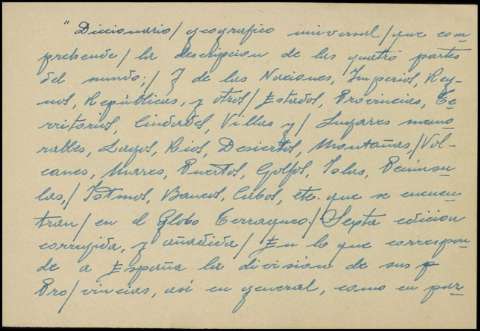 "Diccionario/ geografico universal/ que com-
prehende/ la descripcion de las quatro partes
del mundo;/ Y de las Naciones, Imperios, Rey-
nos, Repúblicas, y otros/ Estados, Provincias, Te-
rritorios, Ciudades, Villas y/ Lugares memo-
rables, Lagos, Rios, Desiertos, Montañas/Vol-
canes, Mares, Puertos, Golfos, Islas, Peninsu-
las,/ Istmos, Bancos, Cabos, etc. que se encuen-
tran/ en el Globo Terraqueo/ Septa edicion
corregida, y añadida/ En lo que correspon-
de a España la division de sus
Pro/vincias, asi en general, como en par-